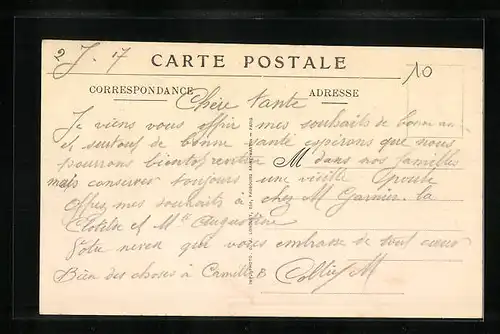 2 J. 17
CARTE POSTALE
10
CORRESPONDANCE
ADRESSE
Chère Tante
Je viens vous offrir mes souhaits de bonne
et surtout de bonne santé espérons que nous
pourrons bientôt rentrer M dans nos familles
mais conserver toujours une vieille
Offres mes souhaits à chez M Garnier. la
Clotilde et Mme Augustine
Votre neveu qui vous embrasse de tout cœur
Bien des choses à Camille